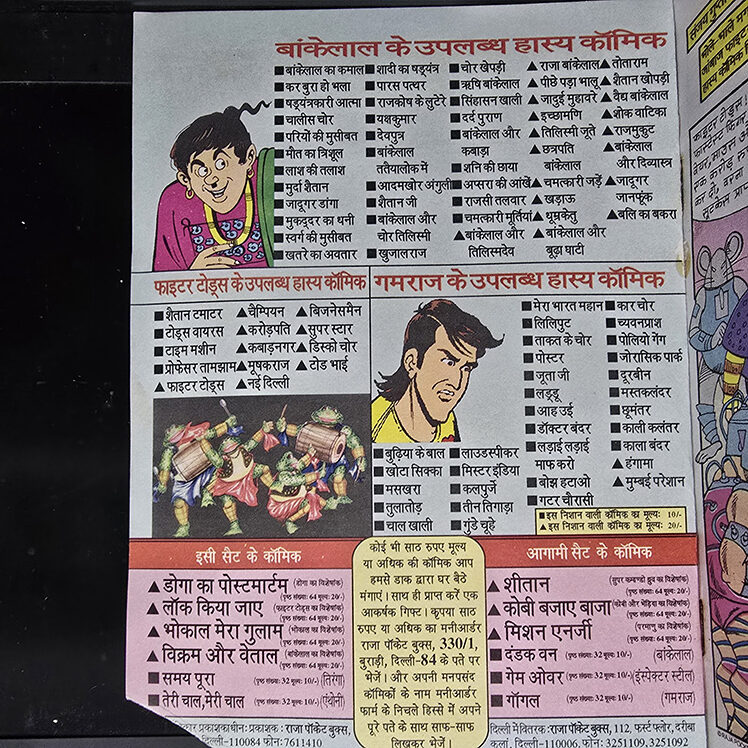 बांकेलाल के उपलब्ध हास्य कॉमिक
■ बांकेलाल का कमाल
■ कर बुरा हो भला
■ षड्यंत्रकारी आत्मा
■ चालीस चोर
■ परियों की मुसीबत
■ मौत का त्रिशूल
■ लाश की तलाश
■ मुर्दा शैतान
■ जादूगर डांगा
■ मुकद्दर का धनी
■ स्वर्ग की मुसीबत
■ खतरे का अवतार
■ शादी का षड्यंत्र
■ पारस पत्थर
■ राजकोष के लुटेरे
■ यक्षकुमार
■ देवपुत्र
■ बांकेलाल
ततैयालोक में
■ आदमखोर अंगुली
■ शैतान जी
■ बांकेलाल और
चोर तिलिस्मी
■ खुजालराज
■ चोर खेपड़ी
■ ऋषि बांकेलाल
■ सिंहासन खाली
■ दर्द पुराण
■ बांकेलाल और
कबाड़ा
■ शनि की छाया
■ अप्सरा की आंखें
■ राजसी तलवार
■ चमत्कारी मूर्तियां
▲ बांकेलाल और
तिलिस्मदेव
▲ राजा बांकेलाल
▲ पीछे पड़ा भालू
▲ जादुई मुहावरे
▲ इच्छामणि
▲ तिलिस्मी जूते
▲ छत्रपति
बांकेलाल
▲ चमत्कारी जड़ें
▲ खड़ाऊ
▲ धूम्रकेतु
▲ बांकेलाल और
बूढ़ा घाटी
▲ तोताराम
▲ शैतान खोपड़ी
▲ वैद्य बांकेलाल
▲ शोक वाटिका
▲ राजमुकुट
▲ बांकेलाल
और दिव्यास्त्र
▲ जादूगर
जानफूंक
▲ बलि का बकरा
फाइटर टोड्स के उपलब्ध हास्य कॉमिक
■ शैतान टमाटर
■ टोड्स वायरस
■ टाइम मशीन
■ प्रोफेसर तामझाम
▲ फाइटर टोड्स
▲ चैम्पियन
▲ करोड़पति
▲ कबाड़नगर
▲ मूषकराज
▲ नई दिल्ली
▲ बिजनेसमैन
▲ सुपर स्टार
▲ डिस्को चोर
▲ टोड भाई
गमराज के उपलब्ध हास्य कॉमिक
■ मेरा भारत महान
■ लिलिपुट
■ ताकत के चोर
■ पोस्टर
■ जूता जी
■ लड्डू
■ आह उई
■ डॉक्टर बंदर
■ लड़ाई लड़ाई
माफ करो
■ बोझ हटाओ
■ गटर चौरासी
■ कार चोर
■ च्यवनप्राश
■ पोलियो गेंग
■ जोरासिक पार्क
■ दूरबीन
■ मस्तकलंदर
■ छूमंतर
■ काली कलंतर
■ काला बंदर
▲ हंगामा
▲ मुम्बई परेशान
■ बुढ़िया के बाल
■ खोटा सिक्का
■ मसखरा
■ तुलातोड़
■ चाल खाली
■ लाउडस्पीकर
■ मिस्टर इंडिया
■ कलपुर्जे
■ तीन तिगाड़ा
■ गुंडे चूहे
■ इस निशान वाली कॉमिक का मूल्य: 10/-
▲ इस निशान वाली कॉमिक का मूल्य: 20/-
इसी सैट के कॉमिक
▲ डोगा का पोस्टमार्टम (डोगा का विशेषांक)
(पृष्ठ संख्या: 64 मूल्य: 20/-)
▲ लॉक किया जाए (फाइटर टोड्स का विशेषांक)
(पृष्ठ संख्या: 64 मूल्य: 20/-)
▲ भोकाल मेरा गुलाम (भोकाल का विशेषांक)
(पृष्ठ संख्या: 64 मूल्य: 20/-)
▲ विक्रम और वेताल (बांकेलाल का विशेषांक)
(पृष्ठ संख्या: 64 मूल्य: 20/-)
■ समय पूरा (पृष्ठ संख्या: 32 मूल्य: 10/-) (तिरंगा)
■ तेरी चाल, मेरी चाल (पृष्ठ संख्या: 32 मूल्य: 10/-) (एंथोनी)
कोई भी साठ रुपए मूल्य
या अधिक की कॉमिक आप
हमसे डाक द्वारा घर बैठे
मंगाएं। साथ ही प्राप्त करें एक
आकर्षक गिफ्ट। कृपया साठ
रुपए या अधिक का मनीआर्डर
राजा पॉकेट बुक्स, 330/1,
बुराड़ी, दिल्ली-84 के पते पर
भेजें। और अपनी मनपसंद
कॉमिकों के नाम मनीआर्डर
फार्म के निचले हिस्से में अपने
पूरे पते के साथ साफ-साफ
लिखकर भेजें।
आगामी सैट के कॉमिक
▲ शीतान (सुपर कमाण्डो ध्रुव का विशेषांक)
(पृष्ठ संख्या: 64 मूल्य: 20/-)
▲ कोबी बजाए बाजा (कोबी और भेड़िया का विशेषांक)
(पृष्ठ संख्या: 64 मूल्य: 20/-)
▲ मिशन एनर्जी (परमाणु का विशेषांक)
(पृष्ठ संख्या: 64 मूल्य: 20/-)
■ दंडक वन (पृष्ठ संख्या: 32 मूल्य: 10/-) (बांकेलाल)
■ गेम ओवर (पृष्ठ संख्या: 32 मूल्य: 10/-) (इंस्पेक्टर स्टील)
■ गॉगल (पृष्ठ संख्या: 32 मूल्य: 10/-) (गमराज)
प्रकाशनाधीन: प्रकाशक : राजा पॉकेट बुक्स,
दिल्ली-110084 फोन: 7611410
दिल्ली में वितरक: राजा पॉकेट बुक्स, 112, फर्स्ट फ्लोर, दरीबा
कलां, दिल्ली-110006, फोन: 3251109, 3251092